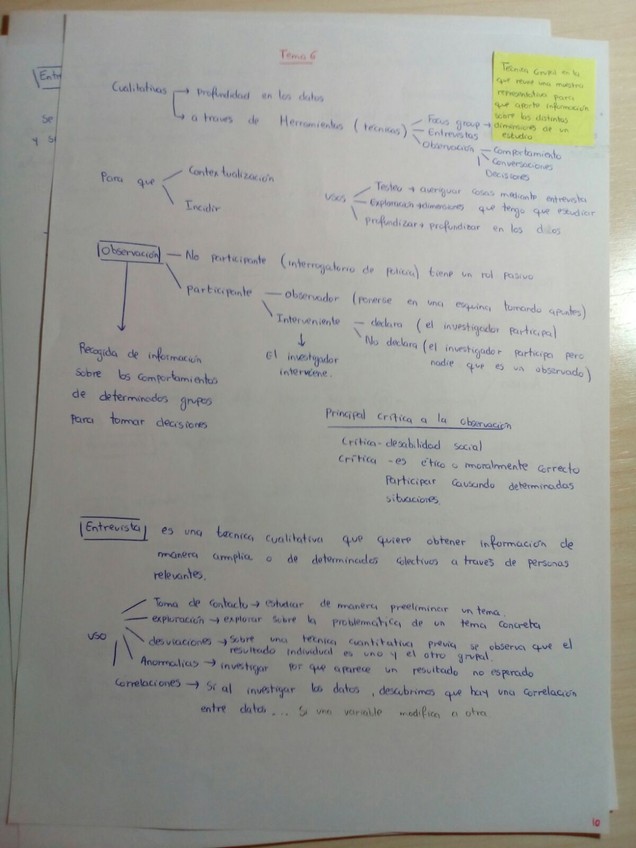 Tema 6
Técnica Grupal en la
que reune una muestra
representativa para
que aporte información
sobre las distintas
dimensiones de un
estudio
Cualitativas → profundidad en los datos
→ a traves de Herramientas (tecnicas) Focus group →
Entrevistas
Observación Comportamiento
Conversaciones
Decisiones
Para que Contextualización
Incidir
usos Testeo → averiguar cosas mediante entrevista
Exploración → dimensiones que tengo que estudiar
profundizar → profundizar en los datos
Observación — No participante (interrogatorio de policia) tiene un rol pasivo
participante — observador (ponerse en una esquina tomando apuntes)
Interveniente — declara (el investigador participa)
No declara (el investigador participa pero
nadie que es un observado)
El investigador
interviene.
Recogida de información
sobre los comportamientos
de determinados grupos
para tomar decisiones
Principal crítica a la observación
Crítica - desabilidad social
Crítica - es ético o moralmente correcto
Participar causando determinadas
situaciones.
Entrevista es una tecnica cualitativa que quiere obtener información de
manera amplia o de determinados colectivos a traves de personas
relevantes.
uso Toma de contacto → estudiar de manera preeliminar un tema.
exploración → explorar sobre la problemática de un tema concreta
desviaciones → Sobre una tecnica cuantitativa previa se observa que el
resultado individual es uno y el otro grupal.
Anomalias → investigar por que aparece un resultado no esperado
Correlaciones → Si al investigar los datos, descubrimos que hay una correlación
entre datos... Si una variable modifica a otra
Entr
se
y s
10